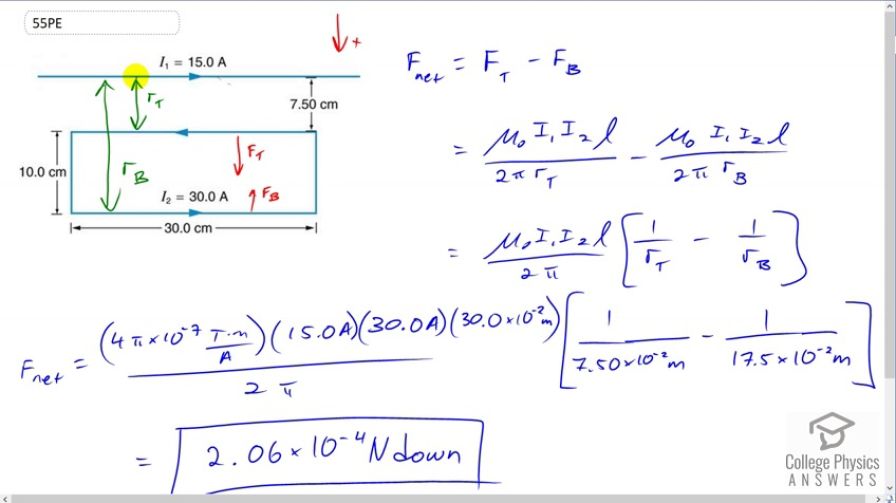 55PE
+
I₁ = 15.0 A
r_T
7.50 cm
10.0 cm
r_B
F_T
I₂ = 30.0 A
F_B
30.0 cm
F_net = F_T - F_B
= μ₀ I₁ I₂ l / 2π r_T - μ₀ I₁ I₂ l / 2π r_B
= μ₀ I₁ I₂ l / 2π [ 1/r_T - 1/r_B ]
F_net = (4π×10⁻⁷ T·m/A)(15.0A)(30.0A)(30.0×10⁻²m) / 2π [ 1/7.50×10⁻²m - 1/17.5×10⁻²m ]
= 2.06×10⁻⁴ N down
College Physics
ANSWERS